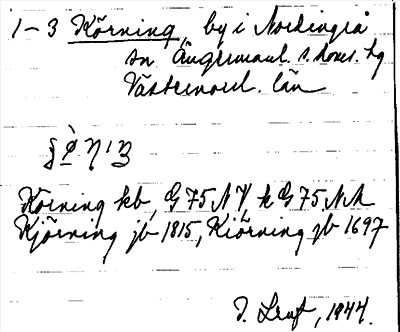 1-3 Körning, by i Nordingrå
sn Ångermanl. s. doms. hg
Västernorrl. län
Körning kb, G 75 NV, k G 75 NA
Kjörning jb 1815, Kiörning jb 1697
1944.